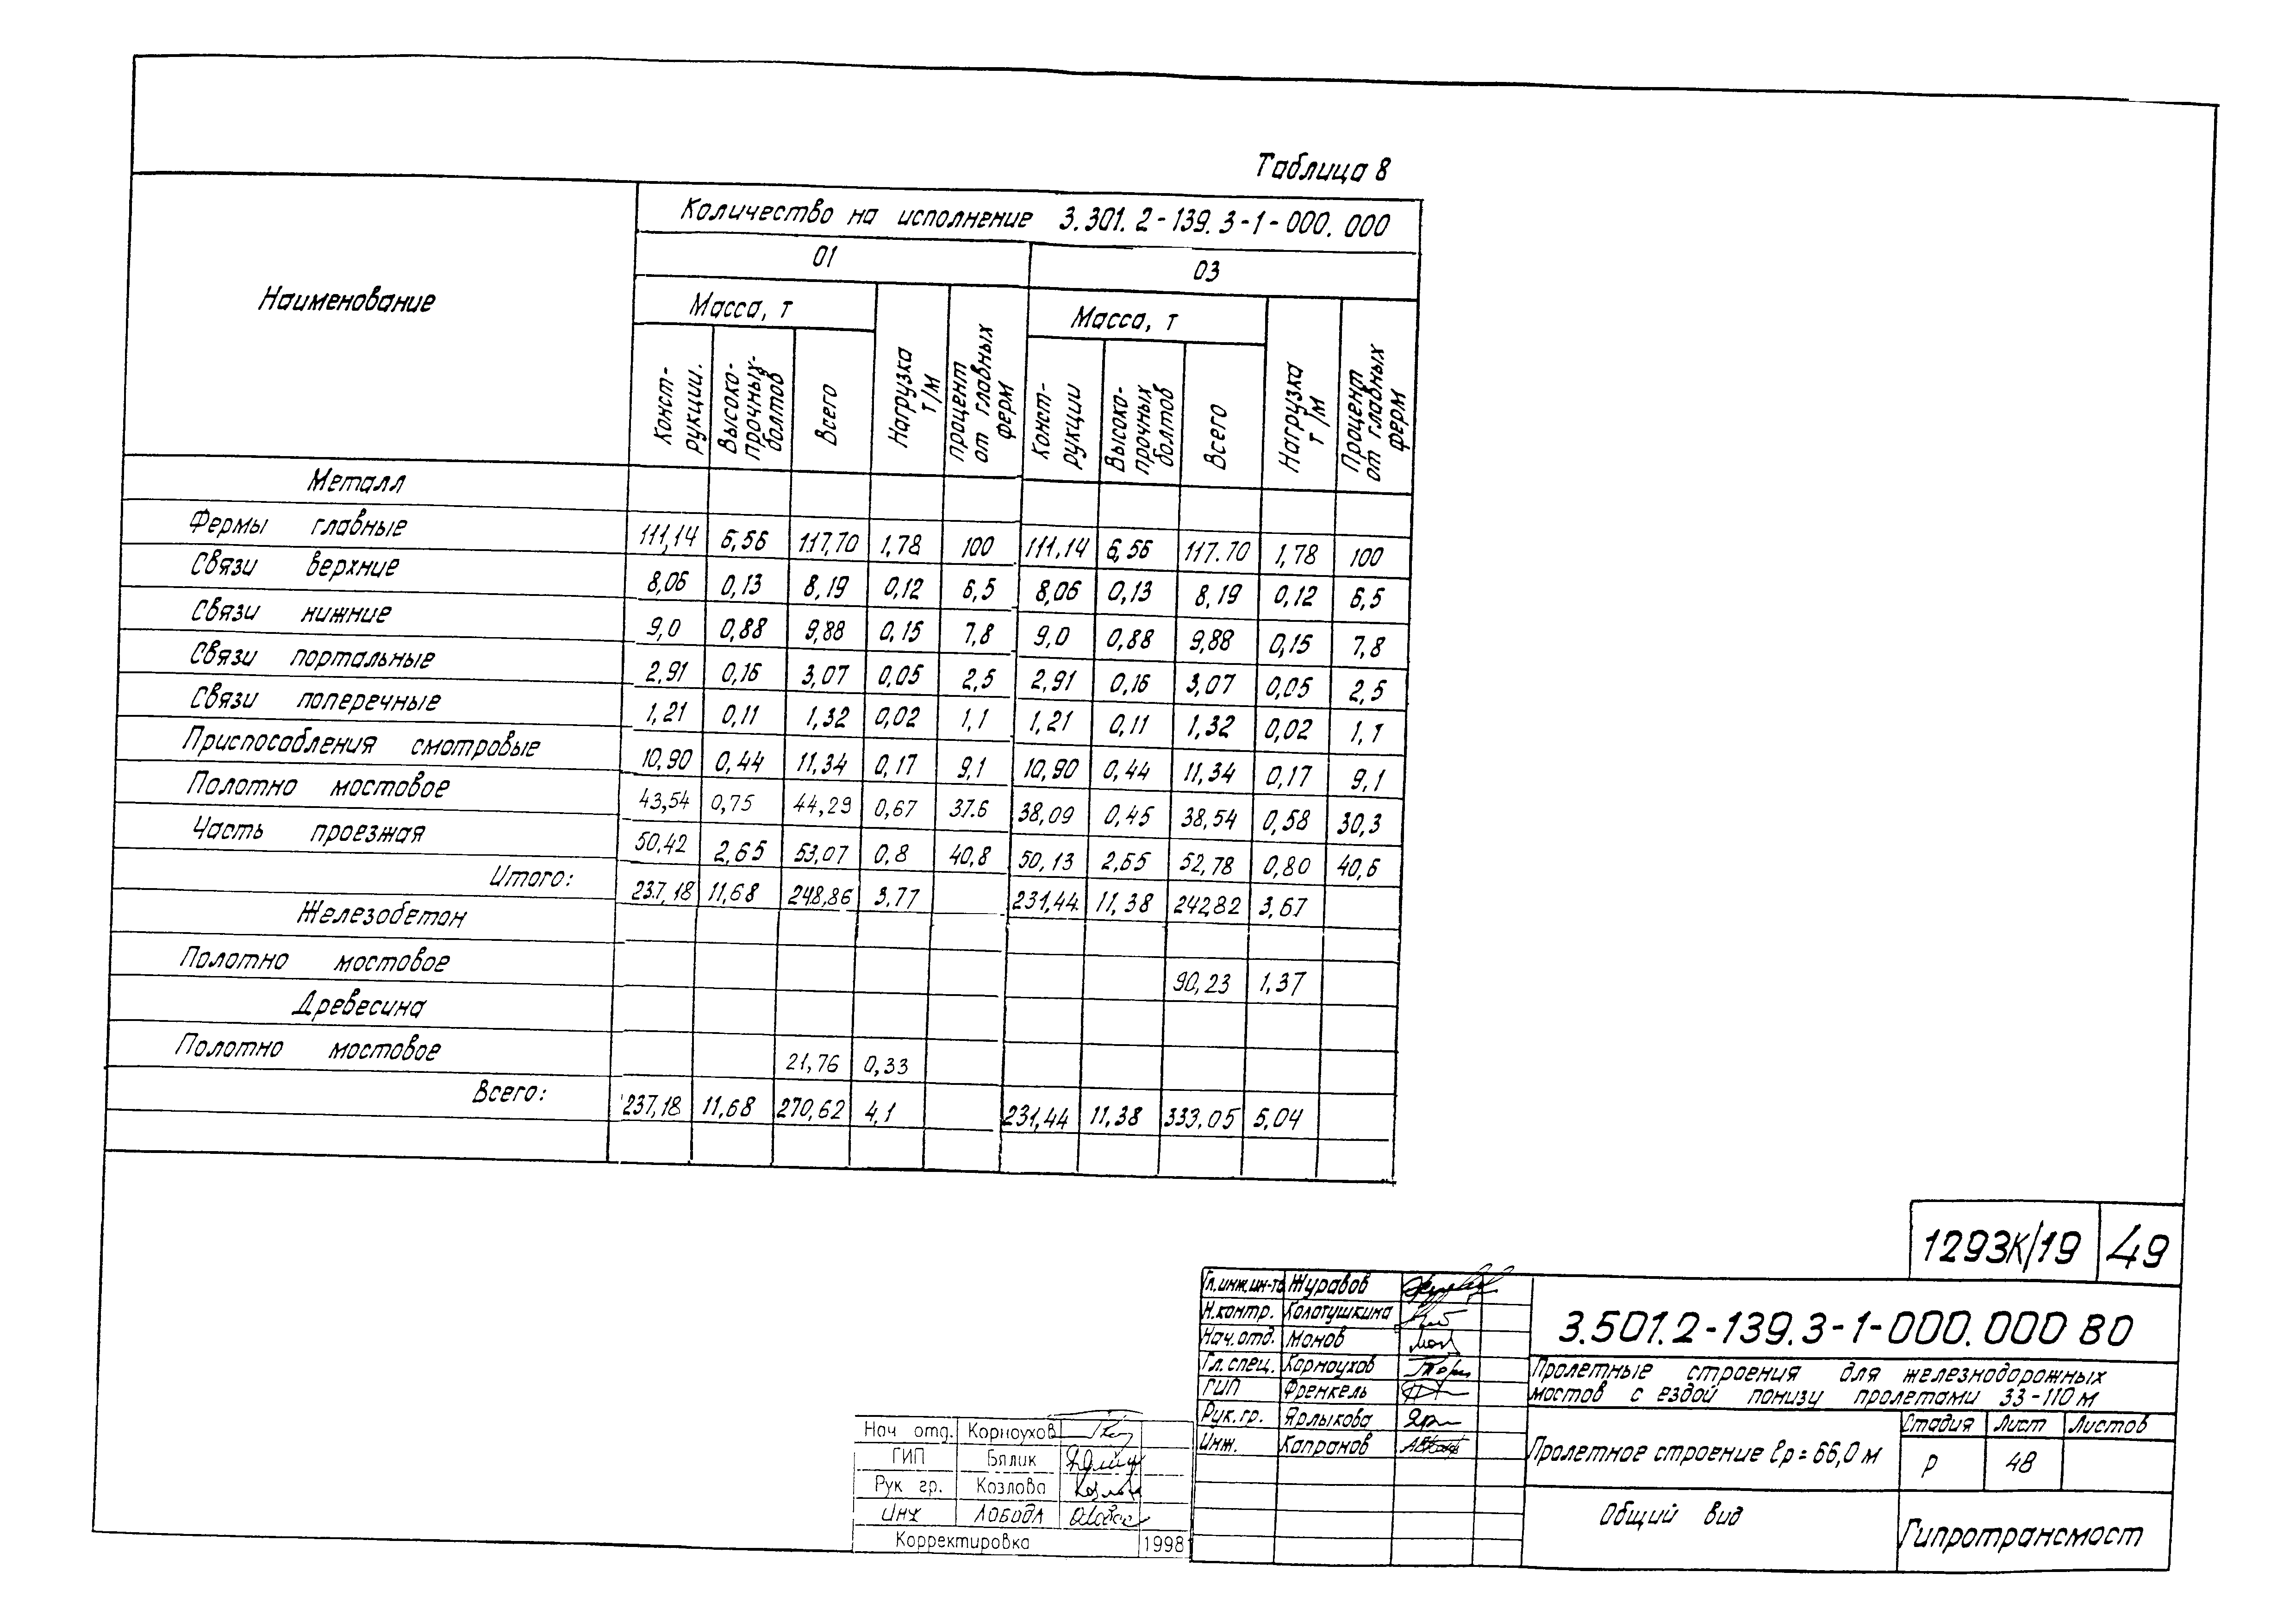 Таблица 8
Наименование
Количество на исполнение 3.301.2-139.3-1-000.000
01 03
Масса, т Нагрузка т/м Процент от главных ферм Масса, т Нагрузка т/м Процент от главных ферм
Конст-рукции. Высоко-прочных-болтов Всего Конст-рукции Высоко-прочных болтов Всего
Металл
Фермы главные 111,14 6,56 117,70 1,78 100 111,14 6,56 117.70 1,78 100
Связи верхние 8,06 0,13 8,19 0,12 6,5 8,06 0,13 8,19 0,12 6,5
Связи нижние 9,0 0,88 9,88 0,15 7,8 9,0 0,88 9,88 0,15 7,8
Связи портальные 2,91 0,16 3,07 0,05 2,5 2,91 0,16 3,07 0,05 2,5
Связи поперечные 1,21 0,11 1,32 0,02 1,1 1,21 0,11 1,32 0,02 1,1
Приспособления смотровые 10,90 0,44 11,34 0,17 9,1 10,90 0,44 11,34 0,17 9,1
Полотно мостовое 43,54 0,75 44,29 0,67 37.6 38,09 0,45 38,54 0,58 30,3
Часть проезжая 50,42 2,65 53,07 0,8 40,8 50,13 2,65 52,78 0,80 40,6
Итого: 237,18 11,68 248,86 3,77 231,44 11,38 242,82 3,67
Железобетон
Полотно мостовое 90,23 1,37
Древесина
Полотно мостовое 21,76 0,33
Всего: 237,18 11,68 270,62 4,1 231,44 11,38 333,05 5,04
1293К/19 49
Гл.инж.ин-та Журавов
Н.контр. Колотушкина
Нач.отд. Монов
Гл.спец. Корноухов
ГИП Френкель
Рук.гр. Ярлыкова
Инж. Капранов
3.501.2-139.3-1-000.000 ВО
Пролетные строения для железнодорожных
мостов с ездой понизу пролетами 33-110 м
Пролетное строение lр = 66,0 м
Стадия Лист Листов
Р 48
Общий вид
Гипротрансмост
Нач отд. Корноухов
ГИП Бялик
Рук гр. Козлова
Инж Лобода
Корректировка 1998